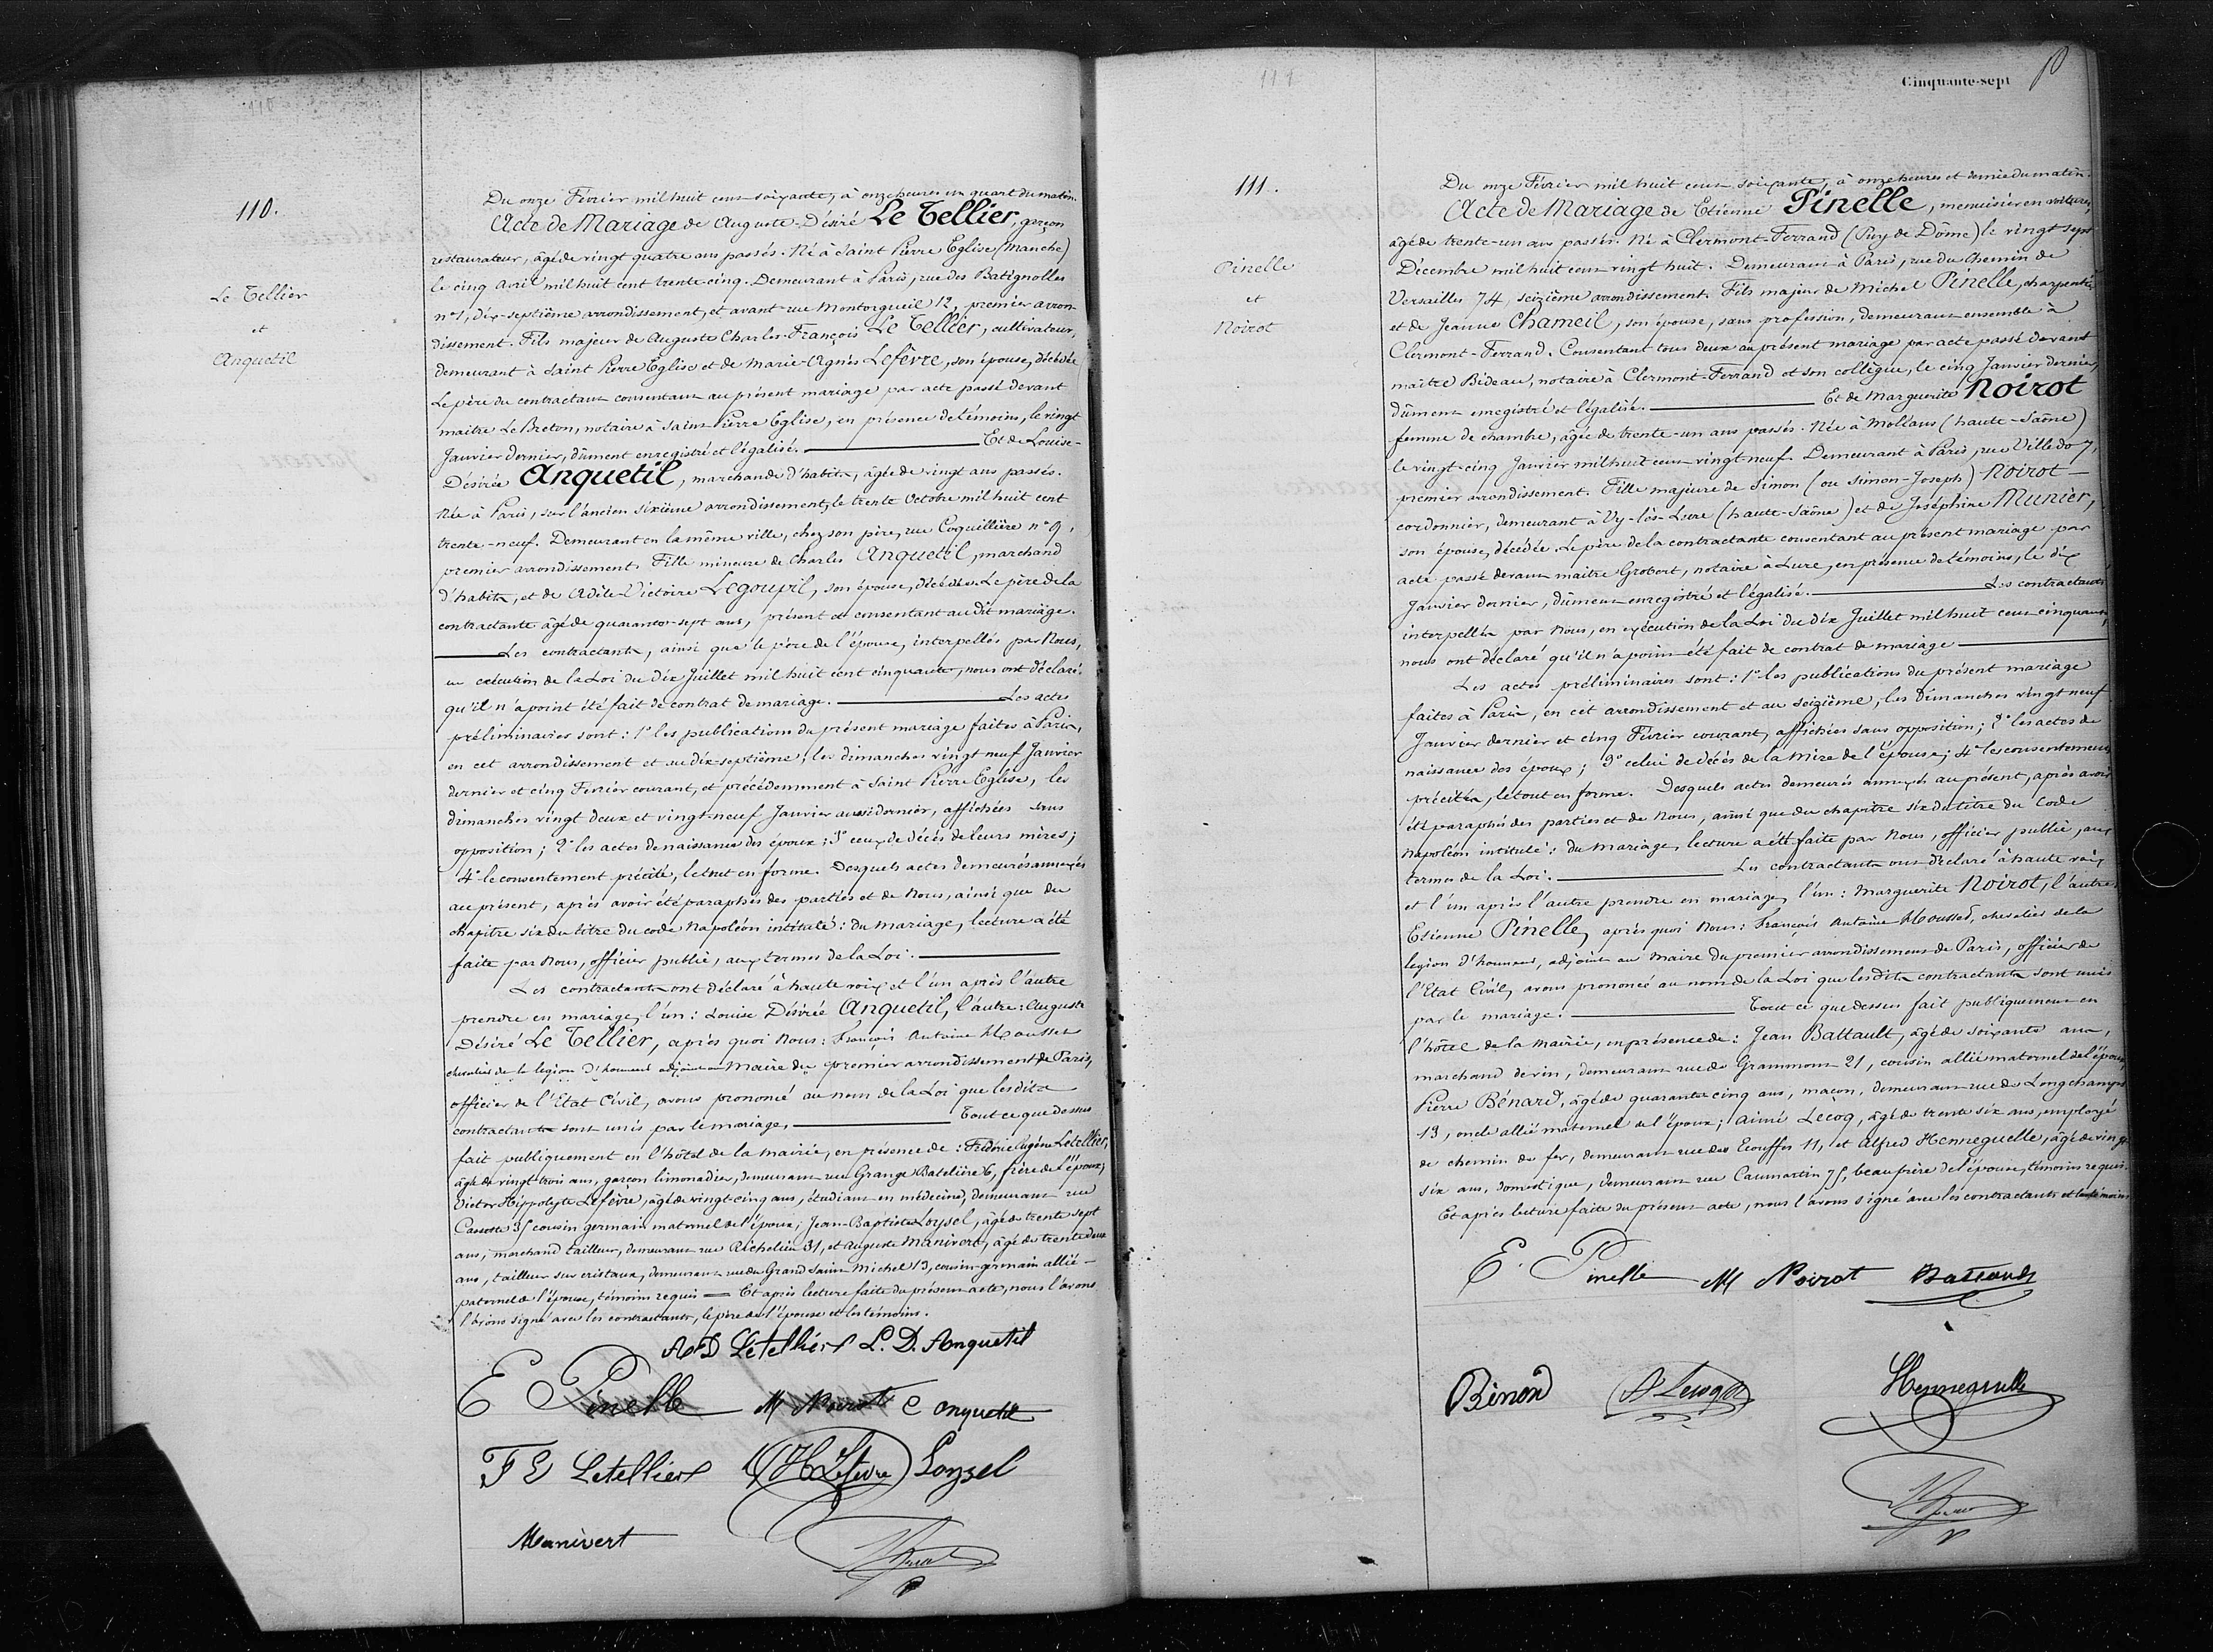 110.
Le Tellier
et
Anquetil
Du onze Février mil huit cent soixante, à onze heures un quart du matin.
Acte de Mariage de Auguste-Désiré Le Tellier, garçon
restaurateur, âgé de vingt quatre ans passés. Né à Saint Pierre Eglise (Manche)
le cinq avril mil huit cent trente-cinq. Demeurant à Paris, rue des Batignolles
n° 1, dix-septième arrondissement, et avant rue Montorgueil 12, premier arron
dissement. Fils majeur de Auguste Charles-François Le Tellier, cultivateur,
demeurant à Saint Pierre Eglise et de Marie-Agnès Lefèvre, son épouse, décédée
Le père du contractant consentant au présent mariage par acte passé devant
maître Le Breton, notaire à Saint-Pierre Eglise, en présence de témoins, le vingt
Janvier dernier, dûment enregistré et légalisé. Et de Louise-
Désirée Anquetil, marchande d'habits, âgée de vingt ans passés.
Née à Paris, sur l'ancien sixième arrondissement, le trente Octobre mil huit cent
trente-neuf. Demeurant en la même ville, chez son père, rue Coquillière n° 9,
premier arrondissement. Fille mineure de Charles Anquetil, marchand
d'habits, et de Adèle-Victoire Legoupil, son épouse, décédée. Le père de la
contractante âgé de quarante-sept ans, présent et consentant au dit mariage.
Les contractants, ainsi que le père de l'épouse, interpellés par Nous,
en exécution de la Loi du Dix Juillet mil huit cent cinquante, nous ont déclaré
qu'il n'a point été fait de contrat de mariage. Les actes
préliminaires sont : 1° les publications du présent mariage faites à Paris,
en cet arrondissement et au dix-septième, les dimanches vingt neuf Janvier
dernier et cinq Février courant, et précédemment à Saint Pierre Eglise, les
dimanches vingt deux et vingt-neuf Janvier aussi dernier, affichées sans
opposition ; 2° les actes de naissance des époux ; 3° ceux de décès de leurs mères ;
4° le consentement précité, le tout en forme. Desquels actes demeurés annexés
au présent, après avoir été paraphés des parties et de Nous, ainsi que du
chapitre six du titre du code Napoléon intitulé : du Mariage, lecture a été
faite par Nous, officier public, aux termes de la Loi.
Les contractants ont déclaré à haute voix et l'un après l'autre
prendre en mariage, l'un : Louise Désirée Anquetil, l'autre : Auguste
Désiré Le Tellier, après quoi Nous : François Antoine
chevalier de la légion d'honneur adjoint au Maire du premier arrondissement de Paris,
officier de l'Etat Civil, avons prononcé au nom de la Loi que lesdits
contractants sont unis par le mariage. Tout ce que dessus
fait publiquement en l'hôtel de la Mairie, en présence de : Frédéric Eugène Letellier,
âgé de vingt-trois ans, garçon limonadier, demeurant rue Grange Batelière 6, frère de l'époux ;
Victor Hippolyte Lefèvre, âgé de vingt-cinq ans, étudiant en médecine, demeurant rue
Cassette 35 cousin germain maternel de l'époux ; Jean-Baptiste Loysel, âgé de trente sept
ans, marchand tailleur, demeurant rue Richelieu 31, et Auguste Manivert, âgé de trente deux
ans, tailleur sur cristaux, demeurant rue du Grand Saint Michel 13, cousin-germain allié
paternel de l'épouse, témoins requis Et après lecture faite du présent acte, nous l'avons
l'avons signé avec les contractants, le père de l'épouse et les témoins.
A D Letellier L. D. Anquetil
E Pinelle M Noirot C Anquetil
F E Letellier H Lefèvre Loysel
Manivert
Cinquante-sept
111.
Pinelle
et
Noirot
Du onze Février mil huit cent soixante, à onze heures et demie du matin.
Acte de Mariage de Etienne Pinelle, menuisier en voitures,
âgé de trente-un ans passés. Né à Clermont-Ferrand (Puy de Dôme) le vingt sept
Décembre mil huit cent vingt huit. Demeurant à Paris, rue du Chemin de
Versailles 74, seizième arrondissement. Fils majeur de Michel Pinelle, charpentier,
et de Jeanne Chameil, son épouse, sans profession, demeurant ensemble à
Clermont-Ferrand. Consentant tous deux au présent mariage par acte passé devant
maître Bideau, notaire à Clermont-Ferrand et son collègue, le cinq Janvier dernier,
dûment enregistré et légalisé. Et de Marguerite Noirot
femme de chambre, âgée de trente-un ans passés. Née à Mollans (haute-Saône)
le vingt-cinq Janvier mil huit cent vingt neuf. Demeurant à Paris, rue Villedo 7,
premier arrondissement. Fille majeure de Simon (ou Simon-Joseph) Noirot
cordonnier, demeurant à Vy-lès-Lure (haute-Saône) et de Joséphine Munier,
son épouse, décédée. Le père de la contractante consentant au présent mariage par
acte passé devant maître Grobert, notaire à Lure, en présence de témoins, le dix
Janvier dernier, dûment enregistré et légalisé. Les contractants
interpellés par Nous, en exécution de la Loi du Dix Juillet mil huit cent cinquante,
nous ont déclaré qu'il n'a point été fait de contrat de mariage
Les actes préliminaires sont : 1° les publications du présent mariage
faites à Paris, en cet arrondissement et au Seizième, les Dimanches vingt neuf
Janvier dernier et cinq Février courant, affichées sans opposition ; 2° les actes de
naissance des époux ; 3° celui de décès de la mère de l'épouse ; 4° les consentements
précités, le tout en forme. Desquels actes demeurés annexés au présent, après avoir
été paraphés des parties et de Nous, ainsi que du chapitre six du titre du Code
Napoléon intitulé : du Mariage, lecture a été faite par Nous, officier public, aux
termes de la Loi. Les contractants ont déclaré à haute voix
et l'un après l'autre prendre en mariage, l'un : Marguerite Noirot, l'autre
Etienne Pinelle, après quoi Nous : François Antoine chevalier de la
légion d'honneur, adjoint au Maire du premier arrondissement de Paris, officier de
l'Etat Civil, avons prononcé au nom de la Loi que lesdits contractants sont unis
par le mariage. Tout ce que dessus fait publiquement en
l'hôtel de la Mairie, en présence de : Jean Battault, âgé de soixante ans,
marchand de vin, demeurant rue de Grammont 21, cousin allié maternel de l'époux,
Pierre Bénard, âgé de quarante cinq ans, maçon, demeurant rue de Longchamps
13, oncle allié maternel de l'époux ; Aimé Lecoq, âgé de trente six ans, employé
de chemin de fer, demeurant rue des Ecouffes 11, et Alfred Hennequelle, âgé de vingt
six ans, domestique, demeurant rue Caumartin 75, beau frère de l'épouse, témoins requis.
Et après lecture faite du présent acte, nous l'avons signé avec les contractants et les témoins
E. Pinelle M Noirot Battault
Bénard A Lecoq Hennequelle